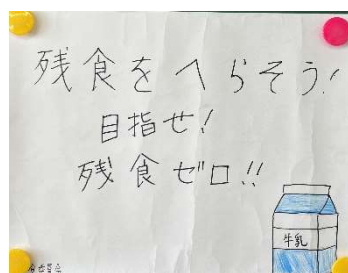 残食をへらそう!
目指せ!
残食ゼロ!!
牛乳